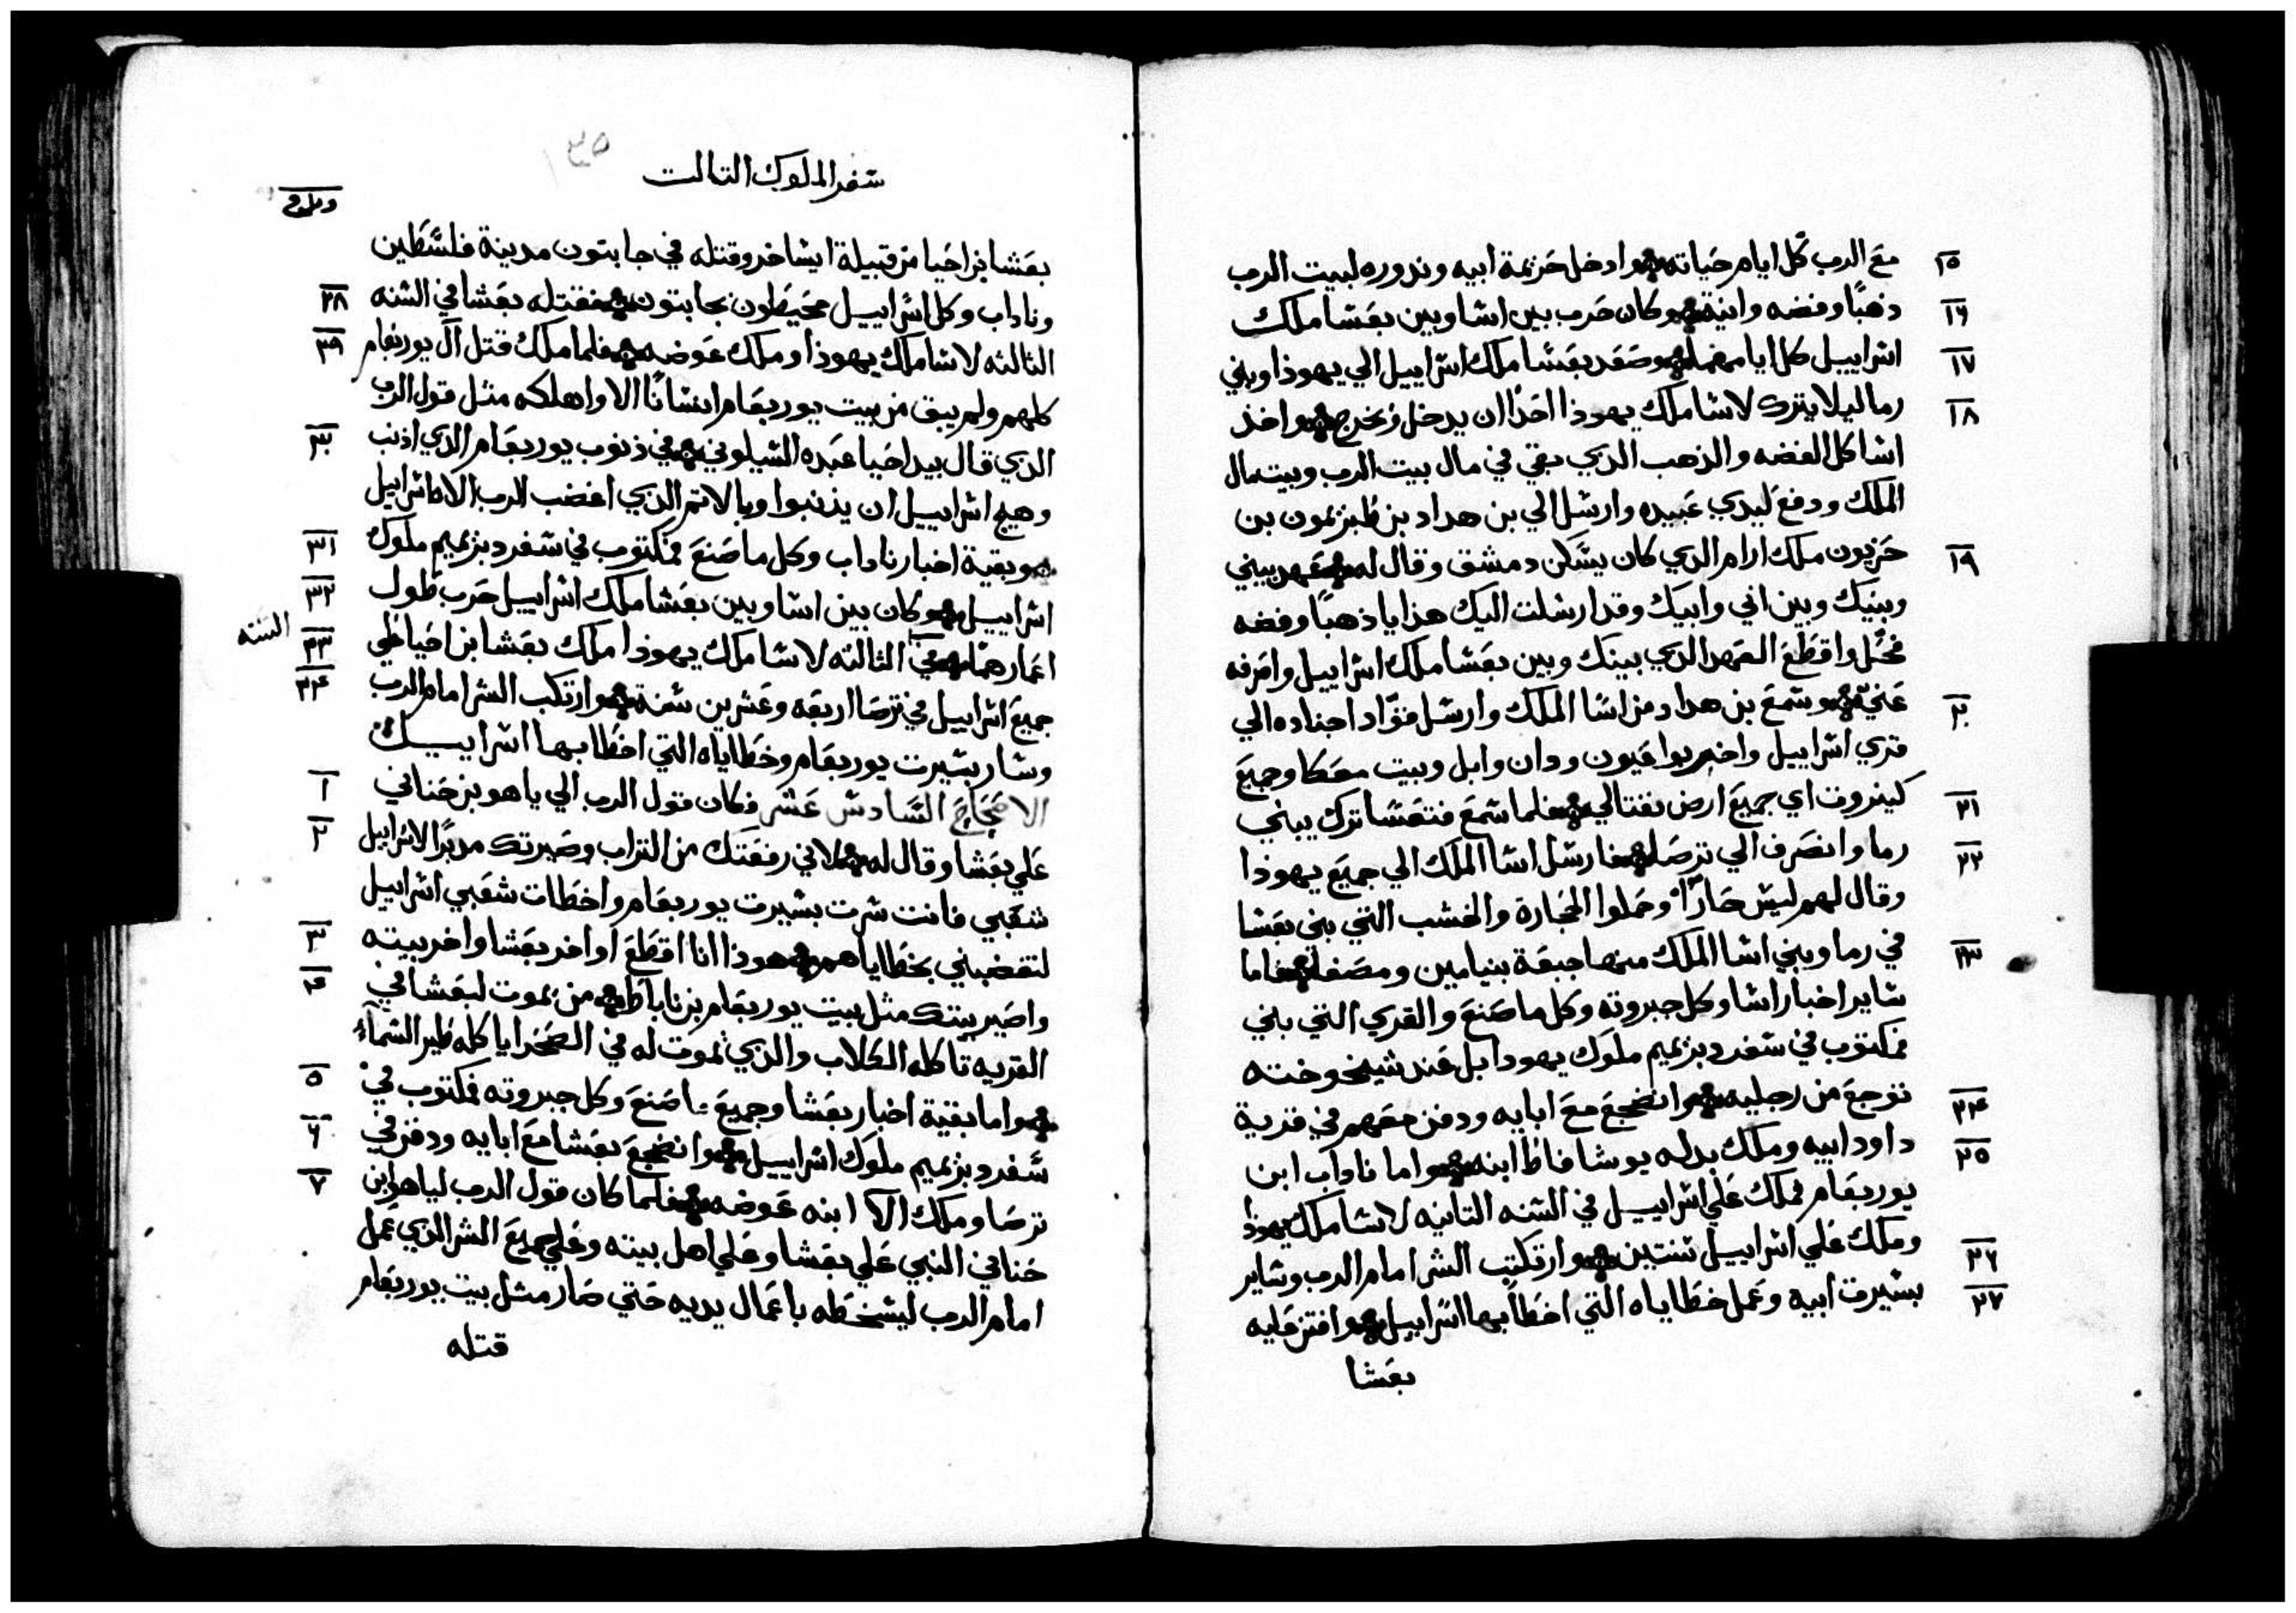 مع الرب كل ايام حياته وادخل حزيمة ابيه ونذوره لبيت الرب
١٥
ذهبًا وفضه وانية وكان حرب بين اشا وبين بعشا ملك
١٦
اسراييل كل ايامهما وصعد بعشا ملك اسراييل الي يهوذا وبني
١٧
رما ليلا يترك لاشا ملك يهوذا احدًا ان يدخل ويخرج واخذ
١٨
اشا كل الفضه والذهب الذي بقي في مال بيت الرب وبيت مال
الملك ودفع ليدي عبيده وارسل الي بن هداد بن طبزيمون بن
حزيون ملك ارام الذي كان يسكن دمشق وقال له عهد بيني
١٩
وبينك وبين ابي وابيك وقد ارسلت اليك هدايا ذهبًا وفضه
فحل واقطع العهد الذي بينك وبين بعشا ملك اسراييل واصرفه
عني وسمع بن هداد من اسا الملك وارسل قوّاد اجناده الي
٢٠
قري اسراييل واخربوا عيون ودان وابل وبيت معكا وجميع
كينروت اي جميع ارض نفتالي فلما سمع فتعشا ترك يبني
٢١
رما وانصرف الي ترصا فارسل اشا الملك الي جميع يهوذا
٢٢
وقال لهم ليس حارًا وحملوا الحجارة والخشب التي بني بعشا
في رما وبني اشا الملك منها جبعة بنيامين ومصفا فاما
٢٣
ساير اخبار اشا وكل جبروته وكل ما صنع والقري التي بني
فمكتوب في سفر دبزيميم ملوك يهودا بل عند شيخوخته
توجع من رجليه وانضجع مع ابايه ودفن معهم في قرية
٢٤
داود ابيه وملك بدله يوشافاط ابنه واما ناداب ابن
٢٥
يوربعام فملك علي اسراييل في السنه التانيه لاشا ملك يهوذا
وملك علي اسراييل سنتين وارتكب الشر امام الرب وساير
٢٦
بسيرت ابيه وعمل خطاياه التي اخطا بها اسراييل وافتز عليه
٢٧
بعشا
٣٥
سفر الملوك التالت
بعشا بن احيا من قبيلة ايشاخر وقتله في جابتون مدينة فلسطين
وناداب وكل اسراييل محيطون بجابتون فقتله بعشا في السنه
٢٨
التالته لاشا ملك يهوذا وملك عوضه فلما ملك قتل آل يوربعام
٢٩
كلهم ولم يبق من بيت يوربعام انسانًا الا واهلكه مثل قول الرب
الذي قال بيد احيا عبده الشيلوني في ذنوب يوربعام الذي اذنب
٣٠
وهيج اسراييل ان يذنبوا وبالاتم الذي اغضب الرب الاه اسراييل
وبقية اخبار ناداب وكل ما صنع فمكتوب في سفر دبزيميم ملوك
٣١
اسراييل وكان بين اشا وبين بعشا ملك اسراييل حرب طول
٣٢
اعمارهما في الثالثه لاشا ملك يهوذا ملك بعشا بن احيا علي
٣٣
السنه
جميع اسراييل في ترصا اربعه وعشرين سنة وارتكب الشر امام الرب
٣٤
وسار بسيرت يوربعام وخطاياه التي اخطا بها اسراييل
الاصحاح السادس عشر فكان قول الرب الي ياهو بن حناني
١
علي بعشا وقال له لاني رفعتك من التراب وصيرتك مدبرًا لاسراييل
٢
شعبي فانت سرت بسيرت يوربعام واخطات شعبي اسراييل
لتغضبني بخطاياهم هوذا انا اقطع اواخر بعشا واخر بيته
٣
واصير بيتك مثل بيت يوربعام بن ناباط من يموت لبعشا في
٤
القريه تاكله الكلاب والذي يموت له في الصحرا ياكله طير السماء
واما بقية اخبار بعشا وجميع ما صنع وكل جبروته فمكتوب في
٥
سفر دبزيميم ملوك اسراييل وانضجع بعشا مع ابايه ودفن في
٦
ترصا وملك الا ابنه عوضه فلما كان قول الرب لياهو ابن
٧
حناني النبي علي بعشا وعلي اهل بيته وعلي جميع الشر الذي عمل
امام الرب ليسخطه باعمال يديه حتي صار مثل بيت يوربعام
قتله